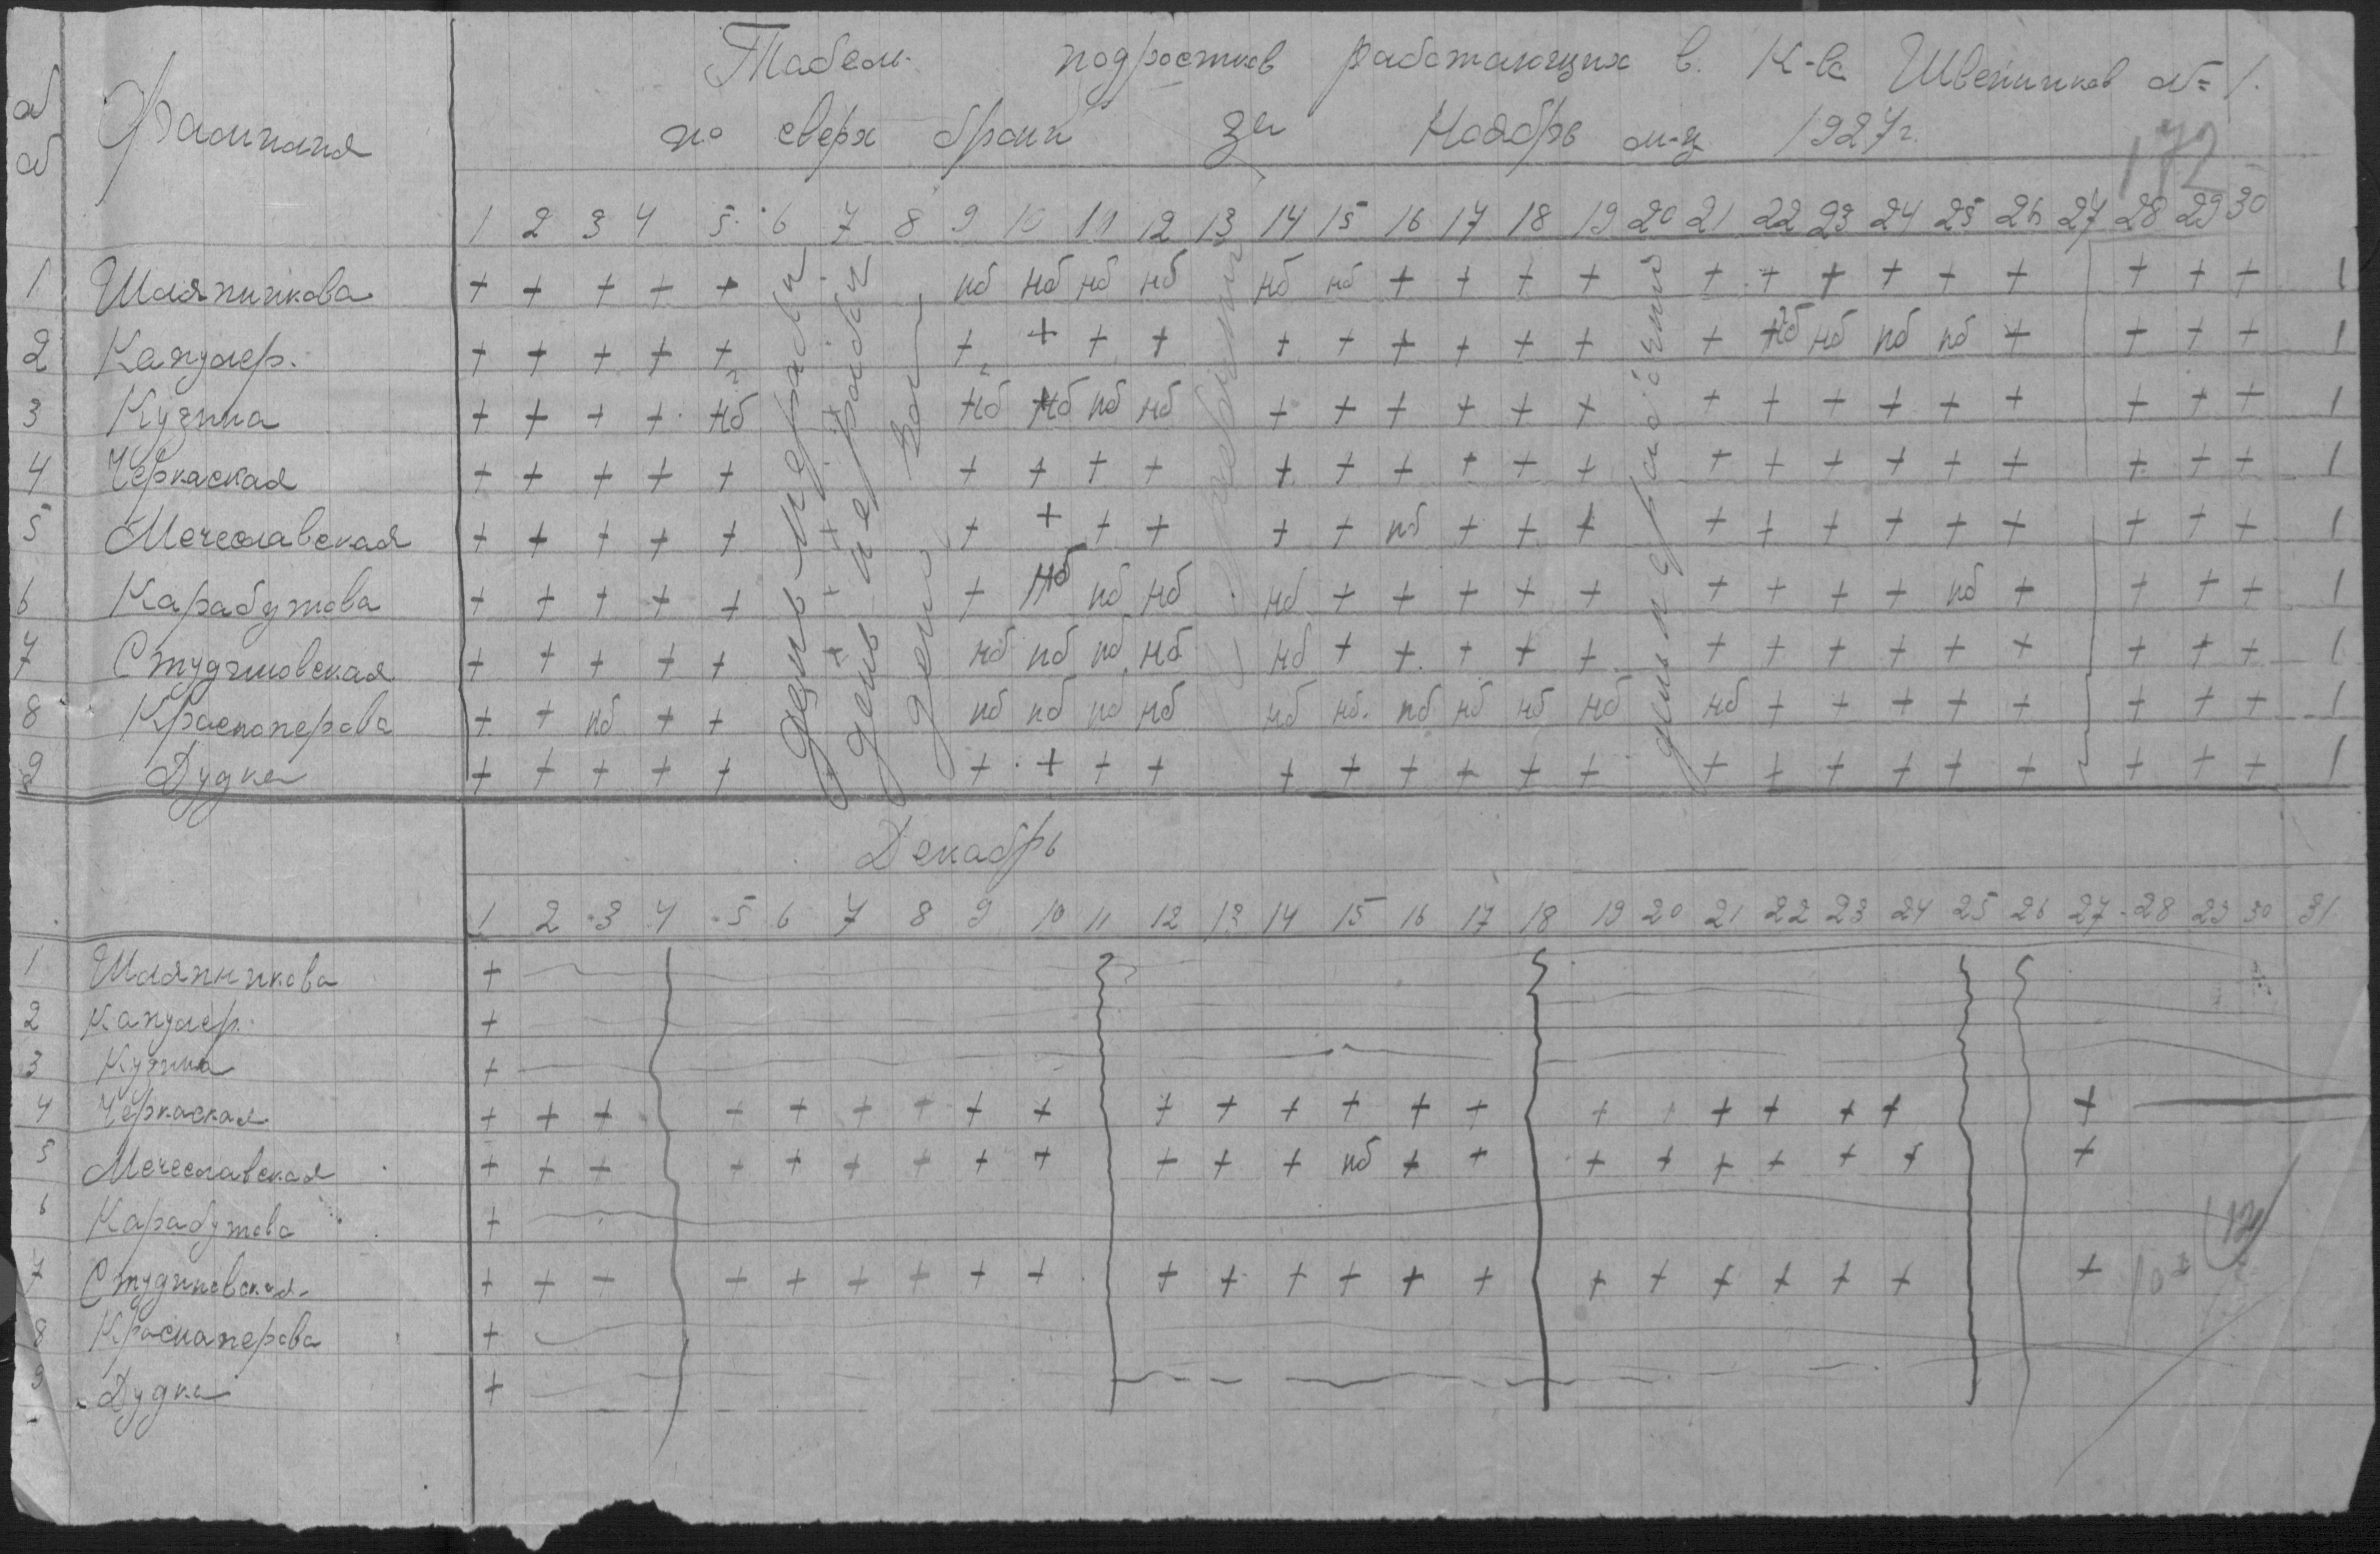 Табель подростков работающих в К-ве Швейников № 1.
по сверх брони за Ноябрь м-ц 1927 г.
172
№ № Фамилия
1 2 3 4 5 6 7 8 9 10 11 12 13 14 15 16 17 18 19 20 21 22 23 24 25 26 27 28 29 30
1 Шляпникова + + + + + нб нб нб нб нб нб + + + + + + + + + + + + + 1
2 Капулер. + + + + + + + + + + + + + + + + нб нб нб нб + + + + 1
3 Кузина + + + + нб нб нб нб нб + + + + + + + + + + + + + + + 1
4 Черкаская + + + + + + + + + + + + + + + + + + + + + + + + 1
5 Мечеславская + + + + + + + + + + + нб + + + + + + + + + + + + 1
6 Карабутова + + + + + + нб нб нб нб + + + + + + + + + нб + + + + 1
7 Студзиловская + + + + + нб нб нб нб нб + + + + + + + + + + + + + + 1
8 Красноперова + + нб + + нб нб нб нб нб нб нб нб нб нб нб + + + + + + + + 1
9 Дудка + + + + + + + + + + + + + + + + + + + + + + + + 1
день нерабочи
день не рабочи
день
день не рабочий
Декабрь
1 2 3 4 5 6 7 8 9 10 11 12 13 14 15 16 17 18 19 20 21 22 23 24 25 26 27 28 29 30 31
1 Шляпникова +
2 Капулер. +
3 Кузина +
4 Черкаская + + + + + + + + + + + + + + + + + + + + + +
5 Мечеславская + + + + + + + + + + + + нб + + + + + + + + +
6 Карабутова +
7 Студиловская + + + + + + + + + + + + + + + + + + + + + +
8 Красноперова +
9 Дудка +